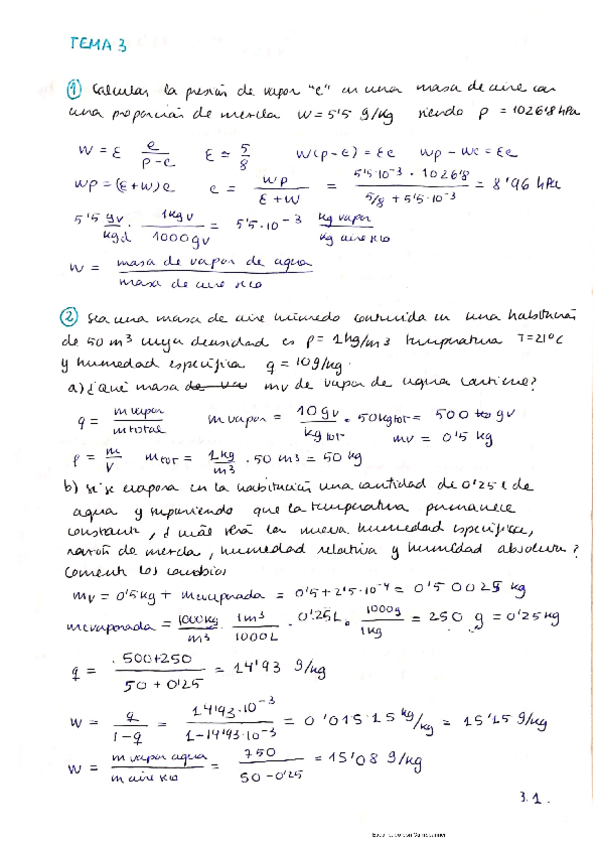 TEMA 3
① Calcular la presión de vapor "e" en una masa de aire con
una proporción de mezcla w = 5'5 g/kg siendo p = 1026'8 hPa
w = ε e/(p-e) ε ≃ 5/8 w(p-e) = εe wp - we = εe
wp = (ε+w)e e = wp/(ε+w) = (5'5·10⁻³ · 1026'8)/(5/8 + 5'5·10⁻³) = 8'96 hPa
5'5 gv/kgd · 1kgv/1000gv = 5'5·10⁻³ kg vapor/kg aire seco
w = masa de vapor de agua/masa de aire seco
② Sea una masa de aire húmedo contenida en una habitación
de 50 m³ cuya densidad es ρ = 1kg/m3 temperatura T=21ºC
y humedad específica q = 10g/kg.
a) ¿Qué masa mv de vapor de agua contiene?
q = m vapor/m total m vapor = 10 gv/kg tot · 50kg tot = 500 gv
mv = 0'5 kg
ρ = m/V m tot = 1 kg/m³ · 50 m3 = 50 kg
b) Si se evapora en la habitación una cantidad de 0'25 l de
agua y suponiendo que la temperatura permanece
constante, ¿cuál será la nueva humedad específica,
razón de mezcla, humedad relativa y humedad absoluta?
Comenta los cambios
mv = 0'5 kg + m evaporada = 0'5 + 2'5·10⁻⁴ = 0'50025 kg
m evaporada = 1000kg/m³ · 1m³/1000L · 0'25L · 1000g/1kg = 250 g = 0'25kg
q = (500+250)/(50 + 0'25) = 14'93 g/kg
w = q/(1-q) = 14'93·10⁻³/(1-14'93·10⁻³) = 0'01515 kg/kg = 15'15 g/kg
w = m vapor agua/m aire seco = 750/(50 - 0'25) = 15'08 g/kg
3.1.